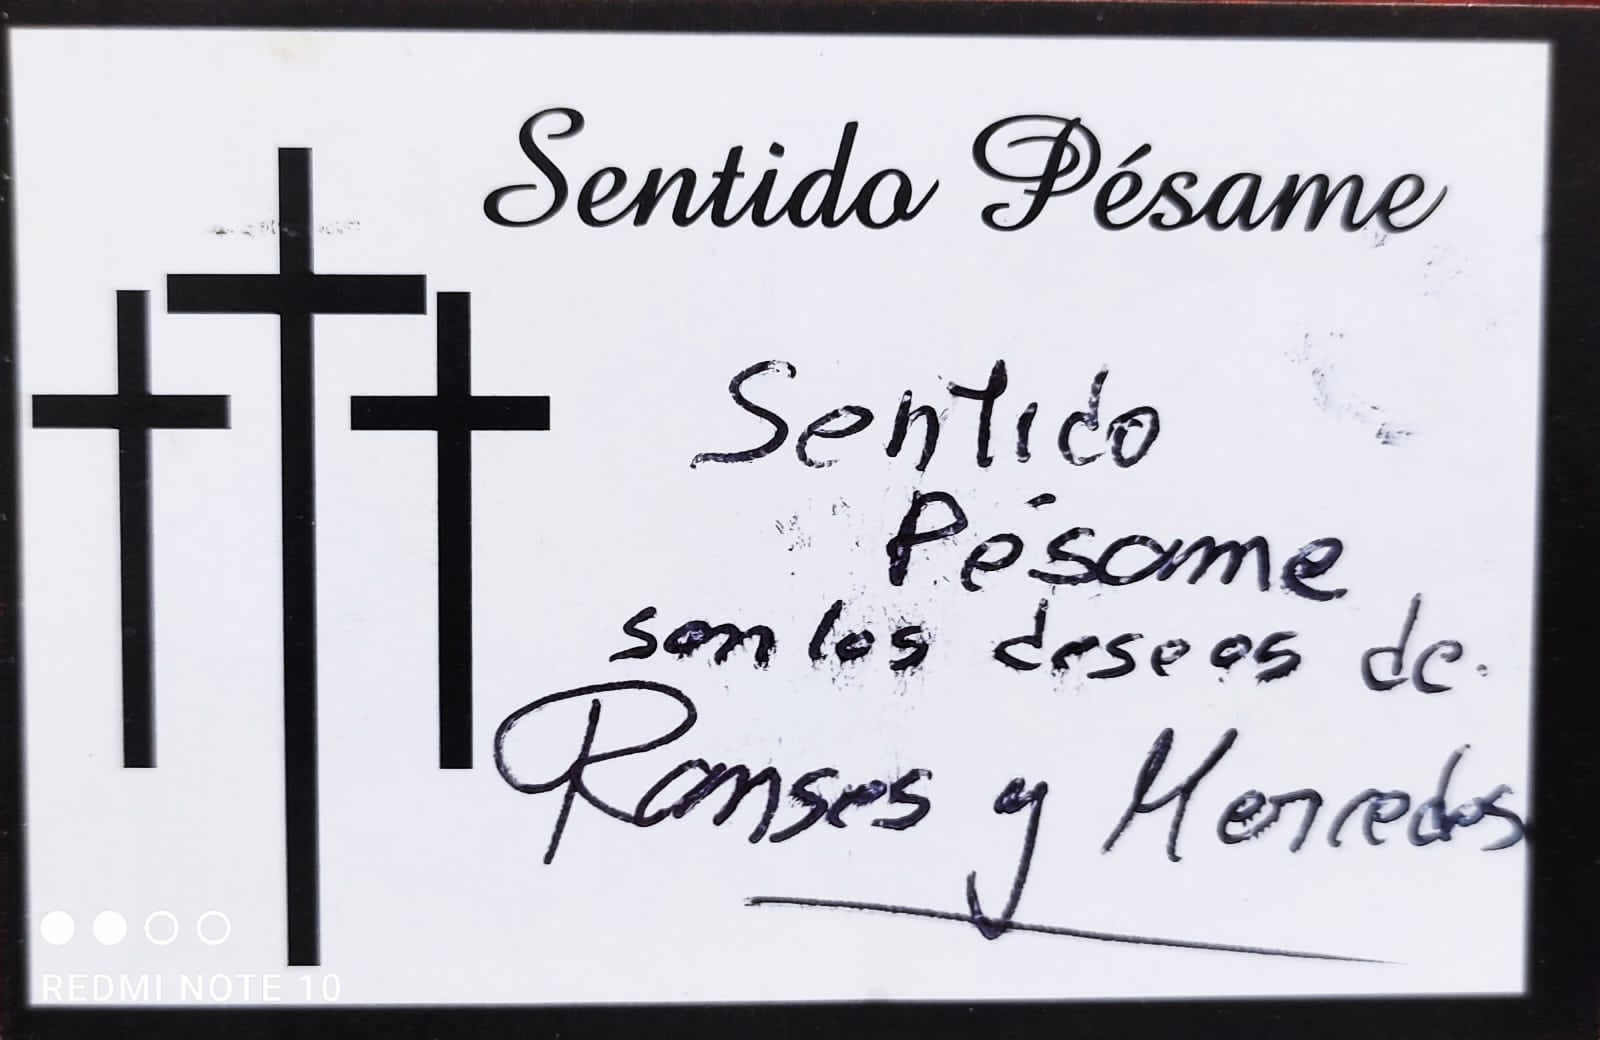 Sentido Pésame
Sentido
Pésame
son los deseos de.
Ramses y Mercedes
REDMI NOTE 10